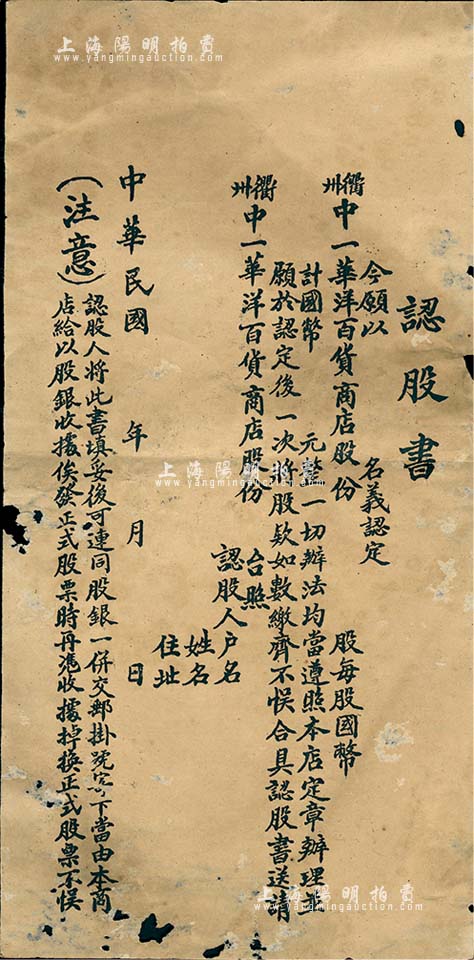 上海陽明拍賣
www.yangmingauction.com
認股書
今願以　名義認定
衢州中一華洋百貨商店股份　股每股國幣
計國幣　元整一切辦法均當遵照本店定章辦理並
願於認定後一次將股欵如數繳齊不悮合具認股書送請
衢州中一華洋百貨商店股份　台照
認股人戶名
姓名
住址
中華民國　年　月　日
（注意）認股人將此書填妥後可連同股銀一併交郵掛號寄下當由本商
店給以股銀收據俟發正式股票時再憑收據掉換正式股票不悮
上海陽明拍賣
www.yangmingauction.com
上海陽明拍賣
www.yangmingauction.com